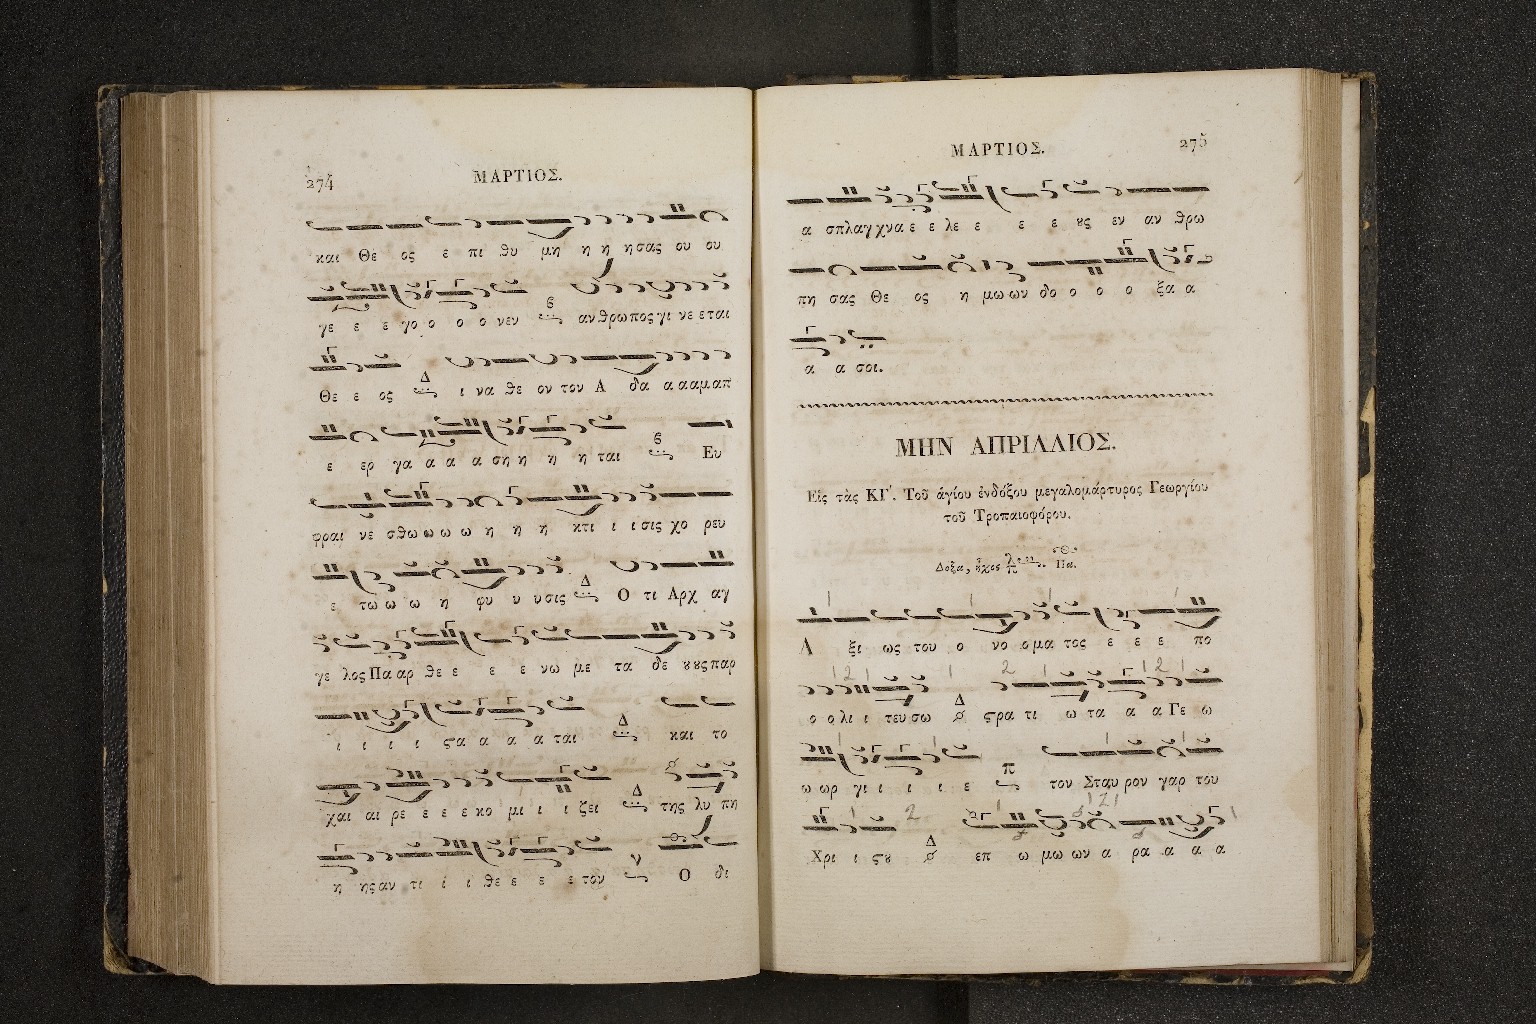 274
ΜΑΡΤΙΟΣ.
και Θε ος ε πι θυ μη η η ησας ου ου
γε ε ε γο ο ο ο νεν ανθρωπος γι νε εται
Θε ε ος Δ ι να θε ον τον Α δα α α αμ απ
ε ερ γα α α α α ση η η η ται Ευ
φραι νε σθω ω ω ω η η η κτι ι ι σις χο ρευ
ε τω ω ω η φυ υ υσις Δ Ο τι Αρχ αγ
γε λος Πα αρ θε ε ε ε νω με τα δε ȣȣς παρ
ι ι ι ι ϛα α α α ται Δ και το
χαι αι ρε ε ε ε κο μι ι ι ζει Δ της λυ πη
η ης αν τι ι ι θε ε ε ε τον ν Ο δι
ΜΑΡΤΙΟΣ.
275
α σπλαγχνα ε ε λε ε ε ε ȣς εν αν θρω
πη σας Θε ος η μω ων δο ο ο ο ξα α
α α σοι.
ΜΗΝ ΑΠΡΙΛΛΙΟΣ.
Εἰς τὰς ΚΓ'. Τοῦ ἁγίου ἐνδόξου μεγαλομάρτυρος Γεωργίου
τοῦ Τροπαιοφόρου.
Δόξα, ἦχος Πα.
Α ξι ως του ο νο ομα τος ε ε ε πο
ο ο λι ι τευ σω Δ ϛρα τι ω τα α α Γε ω
ω ωρ γι ι ι ι ε π τον Σταυ ρον γαρ του
Χρι ι ϛȣ Δ επ ω μω ων α ρα α α α